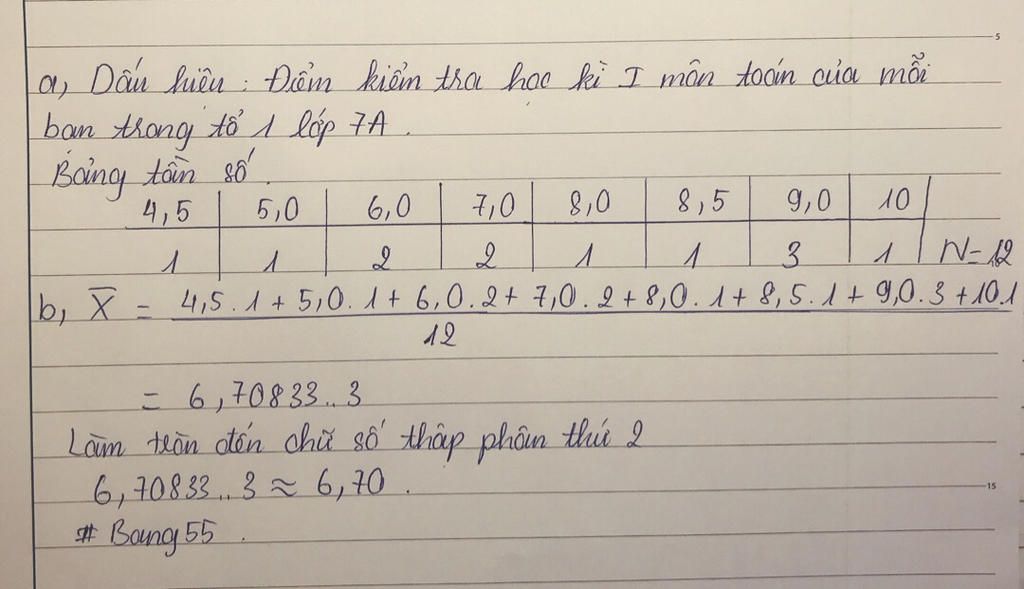 a, Dấu hiệu : Điểm kiểm tra học kì I môn toán của mỗi
bạn trong tổ 1 lớp 7A .
Bảng tần số .
4,5 5,0 6,0 7,0 8,0 8,5 9,0 10
1 1 2 2 1 1 3 1 N=12
b, X̄ = 4,5.1 + 5,0.1 + 6,0.2 + 7,0.2 + 8,0.1 + 8,5.1 + 9,0.3 + 10.1
12
= 6,70833..3
Làm tròn đến chữ số thập phân thứ 2
6,70833..3 ≈ 6,70 .
# Bang55 .
5
15